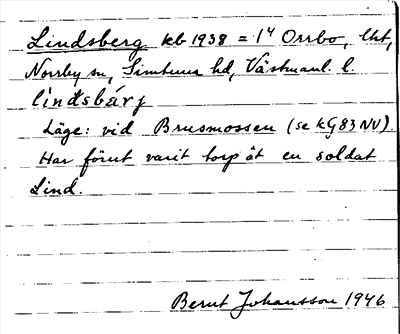 Lindsberg kb 1938 = 1⁴ Orrbo, lht,
Norrby sn, Simtuna hd, Västmanl. l.
lìndsbárj
Läge: vid Brusmossen (se kG83NV).
Har förut varit torp åt en soldat
Lind.
Bernt Johansson 1946